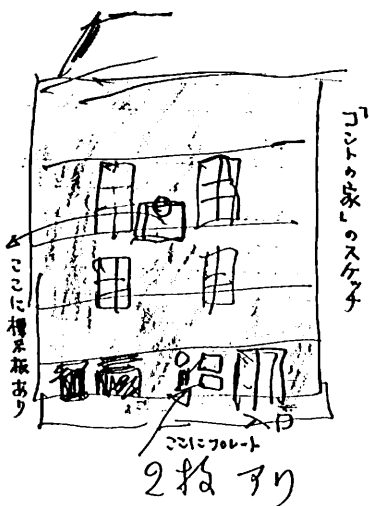 「コントの家」のスケッチ
ここに標示板あり
入口
ここにプレート
2枚アリ